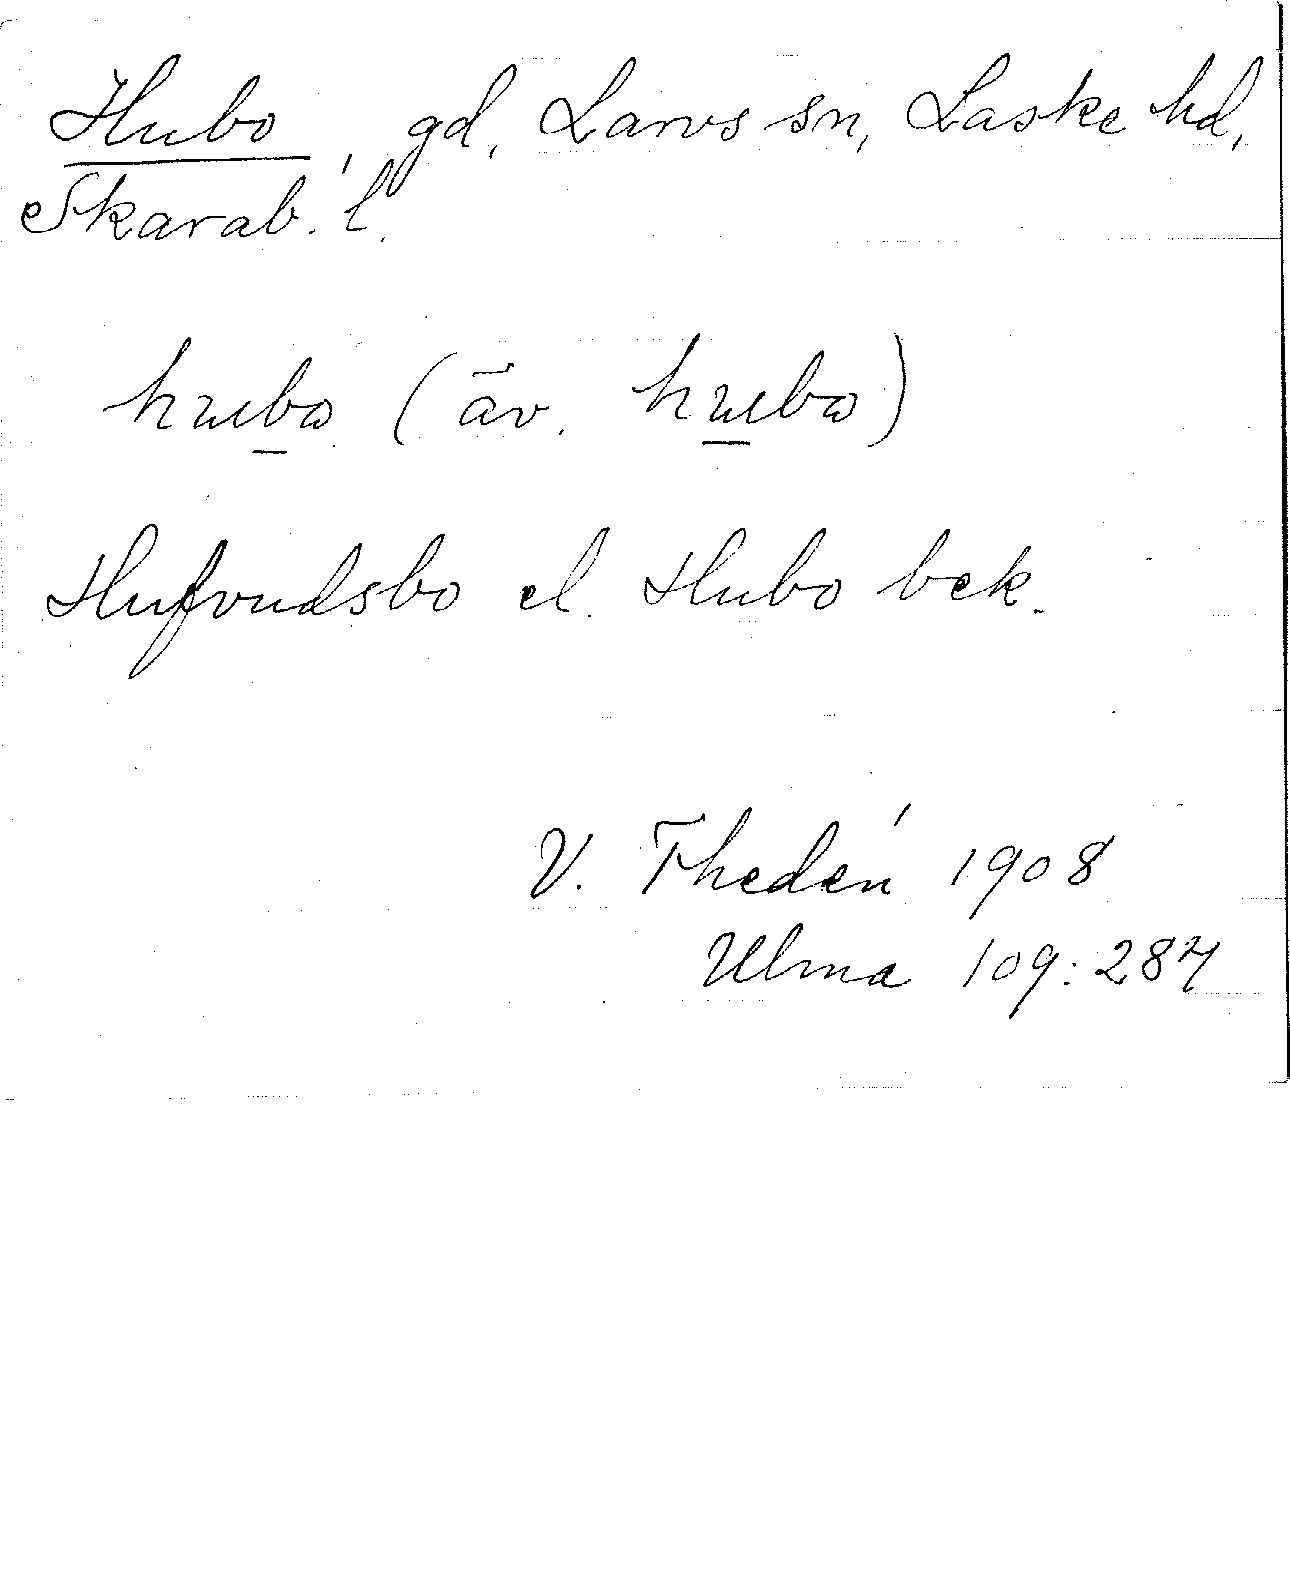 Hubo, gd, Larvs sn, Laske hd,
Skarab. l.
hubo (äv. hubo)
Hufvudsbo el. Hubo bek.
V. Thedén 1908
Ulma 109:287